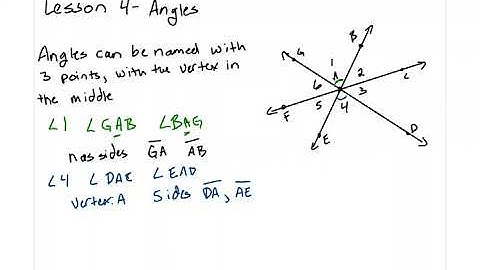 Lesson 4 - Angles
Angles can be named with
3 points, with the vertex in
the middle
∠1 ∠GAB ∠BAG
has sides GA AB
∠4 ∠DAE ∠EAD
vertex: A Sides DA, AE
G
B
1
A
2
C
6
3
5
4
F
E
D